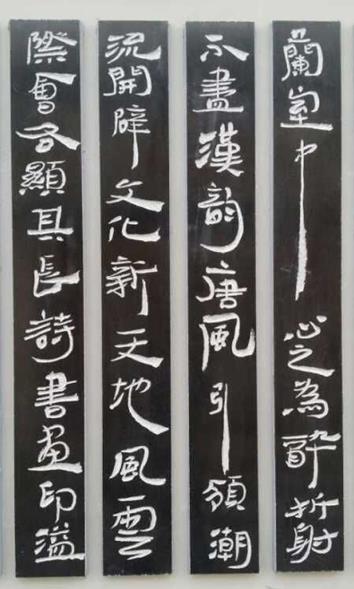 蘭室中心之為酔折射
不盡漢韵唐風引領潮
流開辟文化新天地風雲
際會各顯其長詩書畫印溢